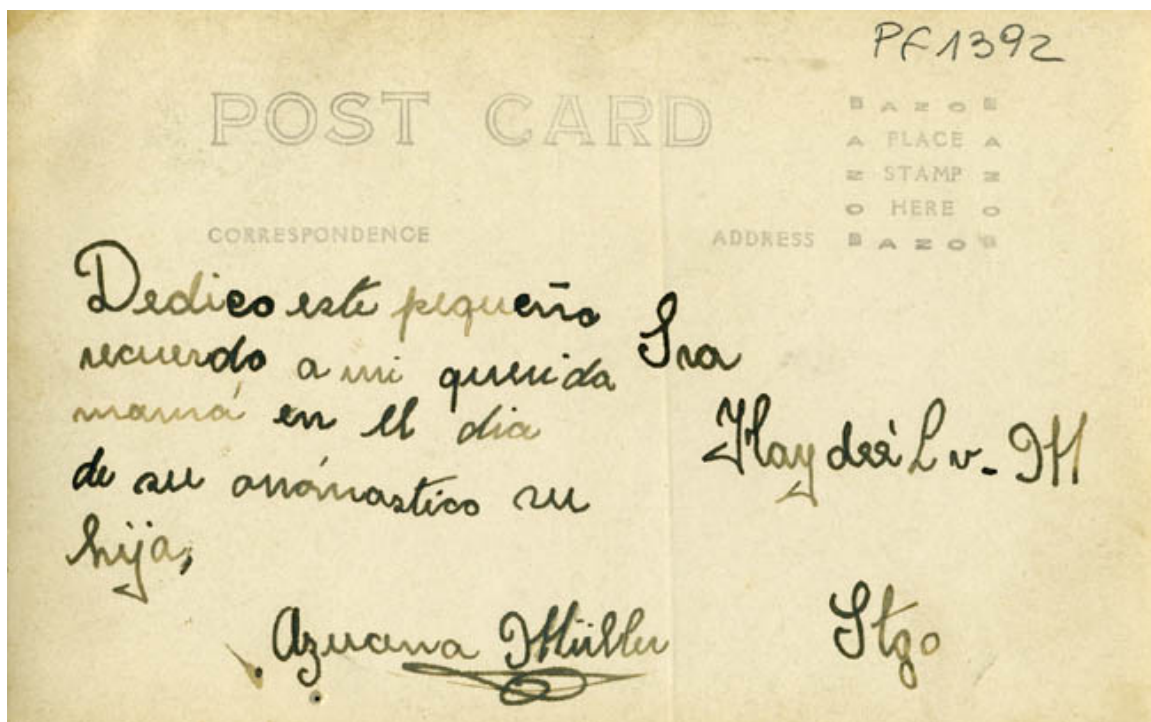 PF1392
POST CARD
B A Z O E
A PLACE A
Z STAMP Z
O HERE O
B A Z O B
CORRESPONDENCE
ADDRESS
Dedico este pequeño
recuerdo a mi querida
mamá en el dia
de su onómastico su
hija,
Azucena Müller
Sra
Haydeé L v. M
Stgo